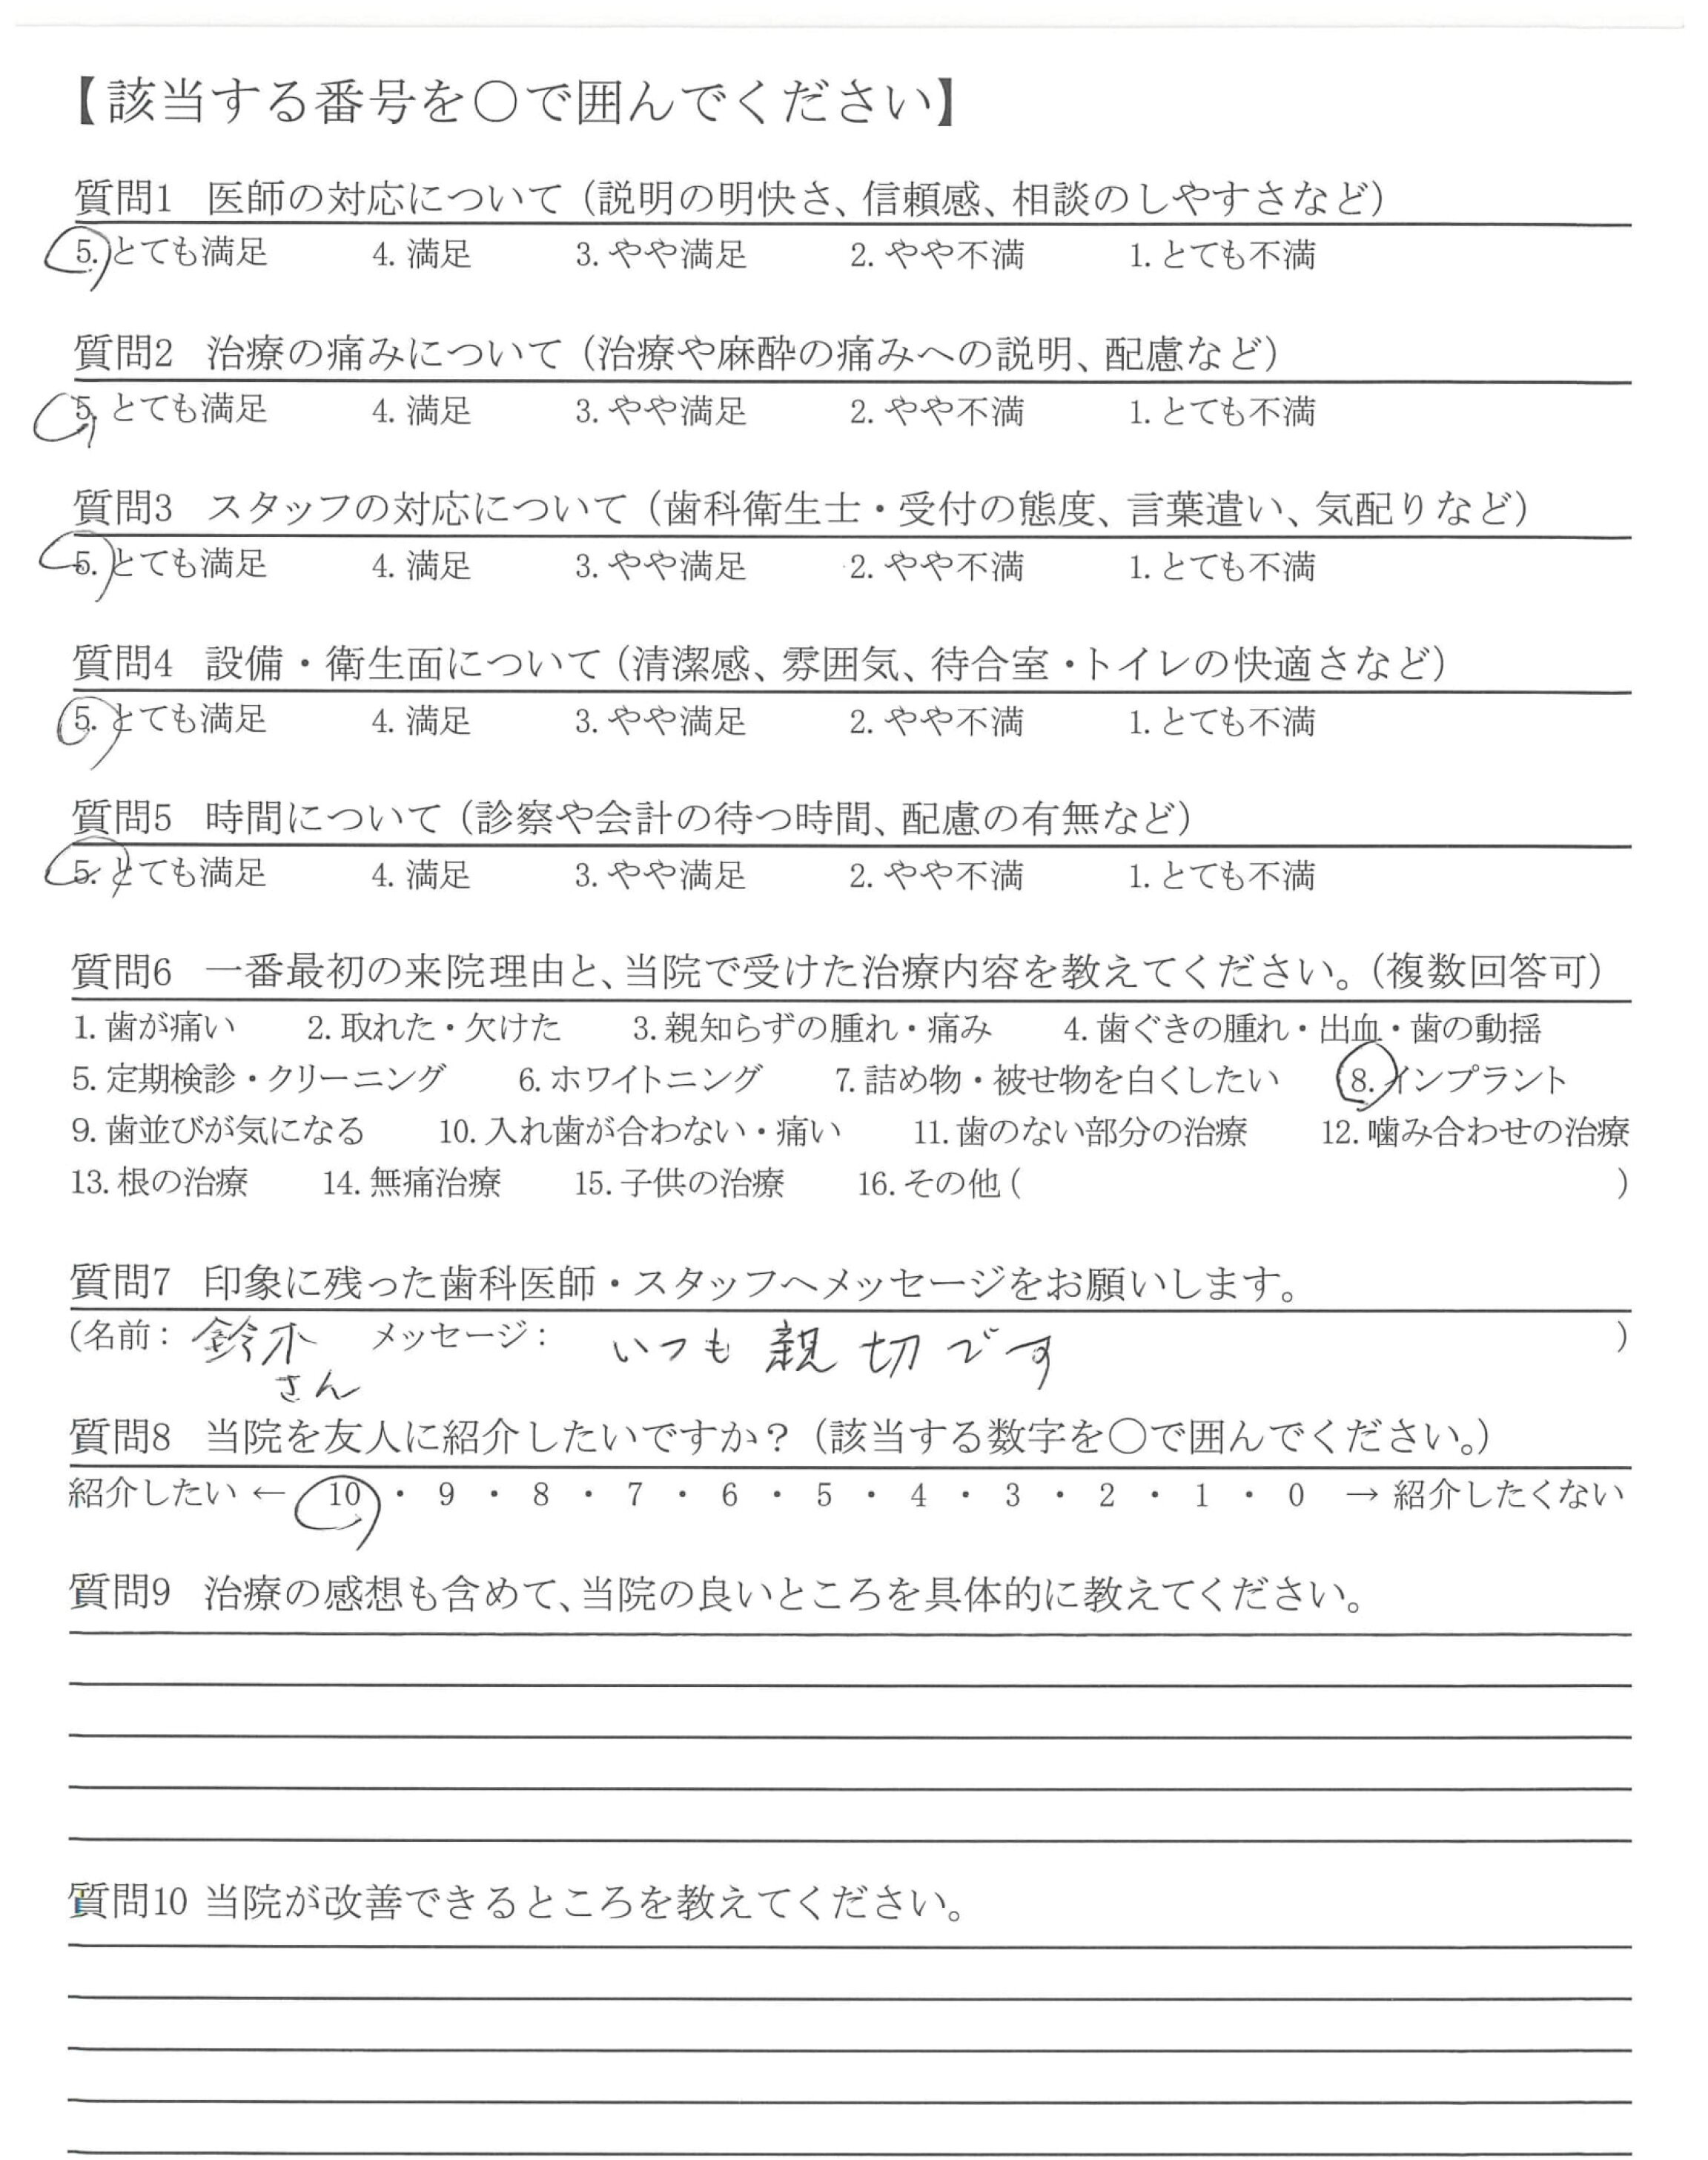 【該当する番号を〇で囲んでください】
質問1 医師の対応について（説明の明快さ、信頼感、相談のしやすさなど）
5. とても満足 4. 満足 3. やや満足 2. やや不満 1. とても不満
質問2 治療の痛みについて（治療や麻酔の痛みへの説明、配慮など）
5. とても満足 4. 満足 3. やや満足 2. やや不満 1. とても不満
質問3 スタッフの対応について（歯科衛生士・受付の態度、言葉遣い、気配りなど）
5. とても満足 4. 満足 3. やや満足 2. やや不満 1. とても不満
質問4 設備・衛生面について（清潔感、雰囲気、待合室・トイレの快適さなど）
5. とても満足 4. 満足 3. やや満足 2. やや不満 1. とても不満
質問5 時間について（診察や会計の待つ時間、配慮の有無など）
5. とても満足 4. 満足 3. やや満足 2. やや不満 1. とても不満
質問6 一番最初の来院理由と、当院で受けた治療内容を教えてください。（複数回答可）
1. 歯が痛い 2. 取れた・欠けた 3. 親知らずの腫れ・痛み 4. 歯ぐきの腫れ・出血・歯の動揺
5. 定期検診・クリーニング 6. ホワイトニング 7. 詰め物・被せ物を白くしたい 8. インプラント
9. 歯並びが気になる 10. 入れ歯が合わない・痛い 11. 歯のない部分の治療 12. 噛み合わせの治療
13. 根の治療 14. 無痛治療 15. 子供の治療 16. その他（ ）
質問7 印象に残った歯科医師・スタッフへメッセージをお願いします。
（名前： 鈴木 メッセージ： いつも親切です ）
さん
質問8 当院を友人に紹介したいですか？（該当する数字を〇で囲んでください。）
紹介したい ← 10 ・ 9 ・ 8 ・ 7 ・ 6 ・ 5 ・ 4 ・ 3 ・ 2 ・ 1 ・ 0 → 紹介したくない
質問9 治療の感想も含めて、当院の良いところを具体的に教えてください。
質問10 当院が改善できるところを教えてください。